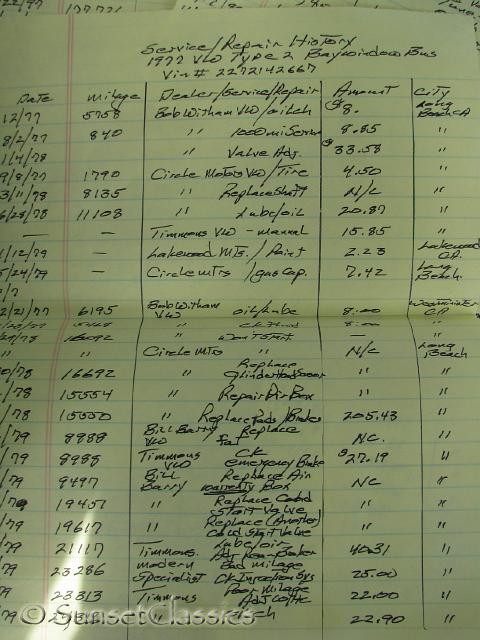 Service/Repair History
1977 VW Type 2 Baywindow Bus
Vin # 2272142667
Date Milage Dealer/Service/Repair Amount City
12/77 5758 Bob Witham VW/oil ch $8. Long Beach CA
8/2/77 840 " 1000 mi Service 8.85 "
1/4/78 " Valve Adj. $33.58 "
9/8/77 1790 Circle Motors VW/Tire 4.50 "
3/11/78 8135 " Replace Shaft N/C "
6/28/78 11108 " Lube/oil 20.87 "
— — Timmons VW - manual 15.85 "
1/12/79 — Lakewood Mts./Paint 2.23 Lakewood CA.
5/24/79 — Circle Mtrs/gas cap. 7.42 Long Beach.
2/21/77 6195 Bob Witham VW oil/Lube 8.00 Westminster CA
" 8.00 "
" Won't Start
" " Circle Mts " N/C Long Beach
/78 16692 " Replace "
/78 15554 " Repair Air Box " "
/78 15550 " Replace Pads/Brakes 205.43 "
/79 8988 Bill Barry VW Replace NC. "
/79 8985 Timmons VW CK emergency Brake $27.19 "
/79 9497 Bill Barry Replace Air Box NC "
warrenty
/79 19451 " Replace Cold Start Valve " "
/79 19617 " Replace (Another) Cold Start Valve " "
/79 21117 Timmons. Lube/oil 40.31 "
/79 23286 Modern Specialist Bad Milage CK Injection Sys 25.00 "
/79 23313 Timmons Poor Milage 22.00 "
/79 " 22.90 "
© SunsetClassics